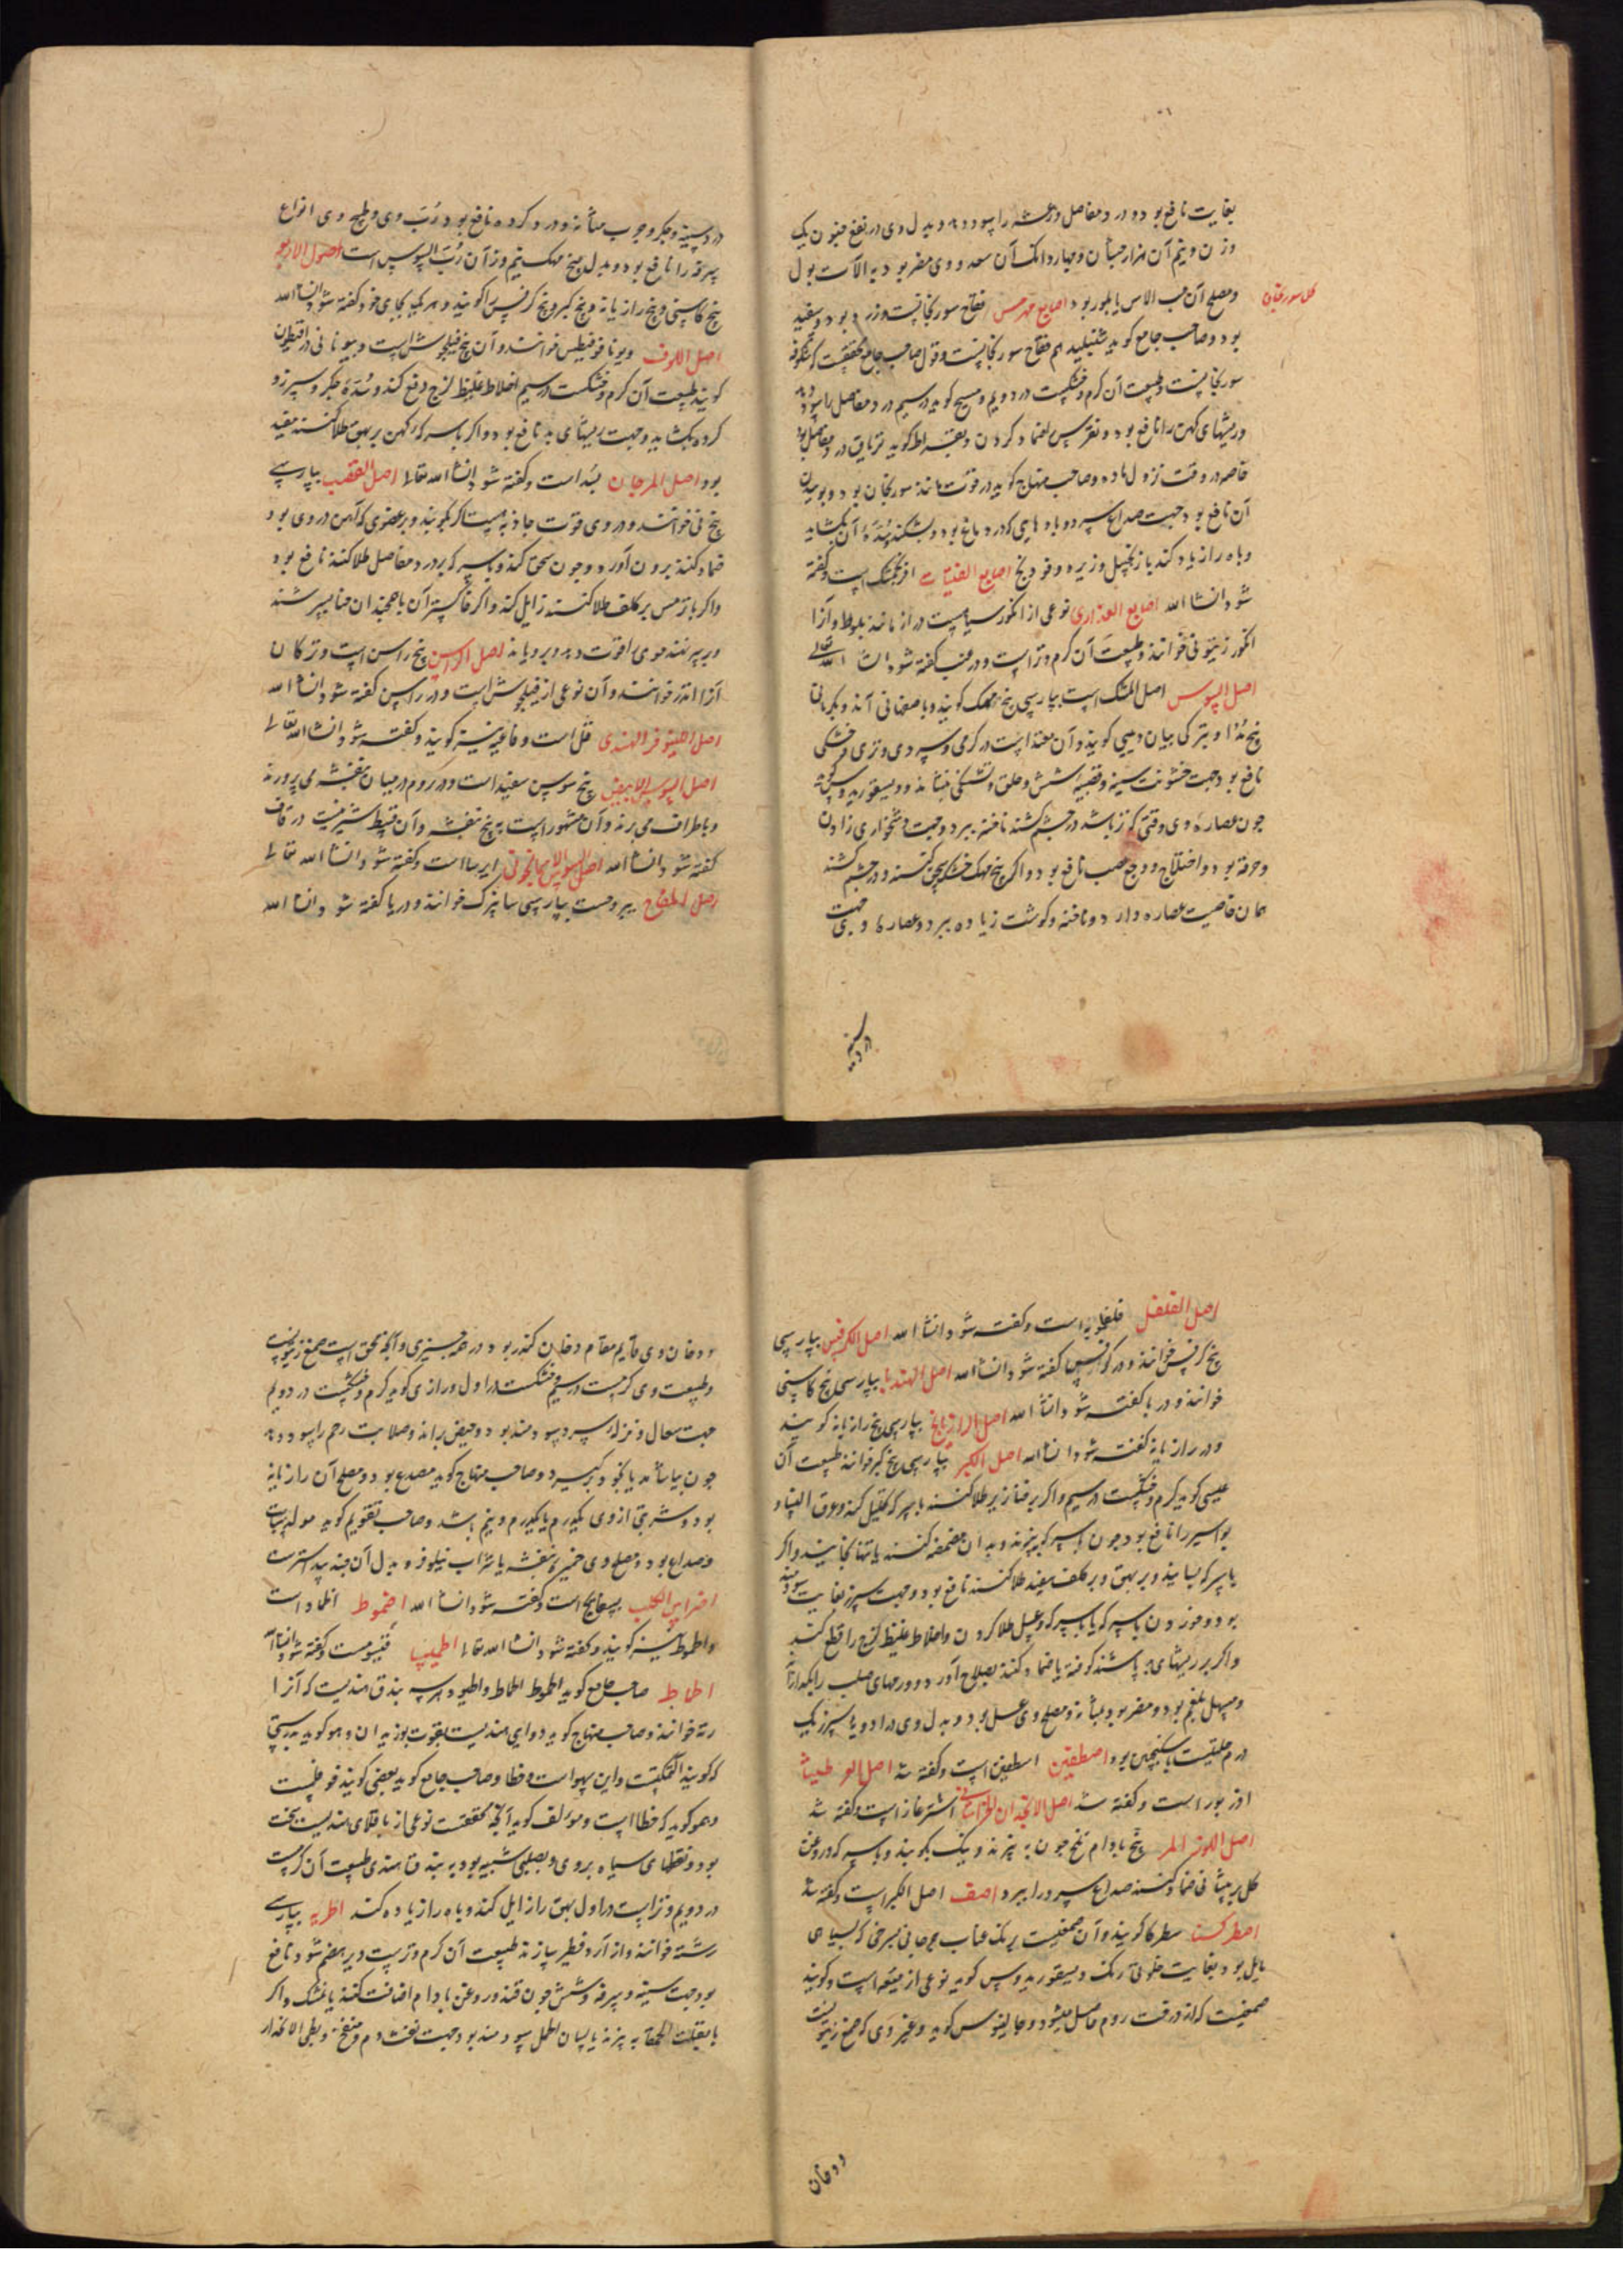 بغایت نافع بود و درد مفاصل و رعشه را سود دهد و بدل وی در نفع جنون یک
وزن و نیم آن هزار جشان و چهار دانک آن سعد و وی مضر بود به آلات بول
و مصلح آن حب الاس یا بلور بود اصابع هرمس فقاح سورنجانست و زرد بود و سفید
کل سورنجان
بود و صاحب جامع کوید شنبلید هم فقاح سورنجانست و قول صاحب جامع محققست که شکوفه
سورنجانست و طبیعت آن کرم و خشکست در دویم و مسیح کوید در سیم درد مفاصل را سود دهد
و ریشهای کهن را نافع بود و نقرس ضماد کردن و بقراط کوید تریاق درد مفاصل بود
خاصه در وقت نزول ماده و صاحب منهاج کوید در قوت مانند سورنجان بود و بوییدن
آن نافع بود جهت صداع سرد و بادهایی که در دماغ بود و بشکند و سده آن بکشاید
و باه را زیاد کند با زنجبیل و زیره و فودنج اصابع الفتیات افرنجمشک است و کفته
شود انشا الله اصابع العذاری نوعی از انکور سیاهست دراز مانند بلوط و آنرا
انکور زیتونی خوانند و طبیعت آن کرم و تر است و در عنب کفته شود انشا الله تعالی
اصل السوس اصل المتک است بپارسی بیخ مهک کویند و باصفهانی آند و بکرمانی
بیخ مژو و بترکی بیان دیبی کویند و آن معتدلست در کرمی و سردی و تری و خشکی
نافع بود جهت خشونت سینه و قصبه شش و حلق و تشنکی بنشاند و دیسقوریدوس کوید
چون عصاره وی وقتی که تر باشد در چشم کشند ناخنه ببرد و جهت دشخواری زادن
و حرقة بول و اختلاج و وجع عصب نافع بود و اکر بیخ مهک خشک سحق کنند و در چشم کشند
همان خاصیت عصاره دارد و ناخنه و کوشت زیاده ببرد و عصاره وی جهت
درد سینه
درد سینه و جکر و جرب مثانه و درد کرده نافع بود رب وی و طبیخ وی انواع
سرفه را نافع بود و بدل بیخ مهک نیم وزن آن رب السوس است اصول الاربعه
بیخ کاسنی و بیخ رازیانه و بیخ کبر و بیخ کرفس را کویند و هر یک بجای خود کفته شود انشا الله
اصل اللوف ویونافوفیطس خوانند و آن بیخ فیلجوش است و بیونانی دراقیطون
کویند طبیعت آن کرم و خشکست در سیم اخلاط غلیظ لزج دفع کند و سده جکر و سپرز و
کرده بکشاید و جهت ریشهای بد نافع بود و اکر با سرکه کهن بر بهق طلا کنند مفید
بود اصل المرجان بسد است و کفته شود انشا الله تعالی اصل القصب بپارسی
بیخ نی خوانند و در وی قوت جاذبه هست اکر بکوبند و بر عضوی که آهن در وی بود
ضماد کنند برون آورد و چون سحق کنند و با سرکه بر درد مفاصل طلا کنند نافع بود
و اکر با ترمس بر کلف طلا کنند زایل کند و اکر خاکستر آن با همچندان حنا بسرشند
و بر سر نهند موی را قوت دهد و برویاند اصل الراسن بیخ راسن است و ترکان
آنرا اندز خوانند و آن نوعی از فیلجوش است و در راسن کفته شود انشا الله
اصل النیلوفر الهندی فل است و فاغیه نیز کویند و کفته شود انشا الله تعالی
اصل السوسن الابیض بیخ سوسن سفید است و در روم در میان بنفشه می پرورند
و باطراف می برند و آن مشهور است به بیخ بنفشه و آن قسط شیرینست در قاف
کفته شود انشا الله اصل السوسن الاسمانجونی ایرسا است و کفته شود انشا الله تعالی
اصل اللفاح یبروحست بپارسی سابیزک خوانند و در یا کفته شود انشا الله
اصل الفلفل فلفلمویه است و کفته شود انشا الله اصل الکرفس بپارسی
بیخ کرفس خوانند و در کرفس کفته شود انشا الله اصل الهندبا بپارسی بیخ کاسنی
خوانند و در ها کفته شود انشا الله اصل الرازیانج بپارسی بیخ رازیانه کویند
و در رازیانه کفته شود انشا الله اصل الکبر بپارسی بیخ کبر خوانند طبیعت آن
عیسی کوید کرم و خشکست در سیم و اکر بر خنازیر طلا کنند با سرکه تحلیل کند و عرق النسا و
بواسیر را نافع بود چون با سرکه بپزند و بدان مضمضه کنند یا تنها بخایند و اکر
با سرکه بسایند و بر بهق و بر کلف سفید طلا کنند نافع بود و جهت سپرز بغایت سودمند
بود خوردن با سرکه یا با سرکه و عسل طلا کردن و اخلاط غلیظ لزج را قطع کند
و اکر بر ریشهای بد پاشند کوفته یا ضماد کنند بصلاح آورد و ورمهای صلب را بکدازاند
و مسهل بلغم بود و مضر بود بمثانه و مصلح وی عسل بود و بدل وی در ادویه سپرز یک
درم حلتیت با سکنجبین بود اصطفین اسطفین است و کفته شد اصل العرطنیثا
اذربور است و کفته شد اصل الانجدان الخراسانی اشترغاز است و کفته شد
اصل اللوز المر بیخ بادام تلخ چون به پزند و نیک بکوبند و با سرکه و روغن
کل بر پیشانی ضماد کنند صداع سرد را ببرد اصف اصل الکبر است و کفته شد
اصطرک سطرکا کویند و آن صمغیست برنک عناب مرجانی بسرخی که بسیاهی
مایل بود و بغایت خلوقی رنک و دیسقوریدوس کوید نوعی از میعه است و کویند
صمغیست که از درخت روم حاصل میشود و جالینوس کوید و غیر وی که صمغ زیتونست
و دخان
و دخان وی قایم مقام دخان کندر بود در همه چیزی و آنچه محقق است صمغ زیتونست
و طبیعت وی کرمست در سیم و خشکست در اول و رازی کوید کرم و خشکست در دویم
جهت سعال و نزله سرد سودمند بود و حیض براند و صلابت رحم را سود دهد
چون بیاشامند یا بخود برکیرند و صاحب منهاج کوید مصدع بود و مصلح آن رازیانه
بود و شربتی از وی یکدرم یا یکدرم و نیم باشد و صاحب تقویم کوید مولد سبات
و صداع بود و مصلح وی خمیره بنفشه یا شراب نیلوفر و بدل آن جندبیدستر است
اضراس الکلب بسفایج است و کفته شود انشا الله اضموط اظماد است
و اطموط نیز کویند و کفته شود انشا الله تعالی اطیبیا فنیوست و کفته شود انشا الله
اطماط صاحب جامع کوید اطموط اطماط و اطیوط هر سه بندق هندیست که آنرا
رته خوانند و صاحب منهاج کوید دوایی هندیست بقوت بوزیدان و همو کوید بدرستی
که کویند آکتمکتست و این سهو است و خطا و صاحب جامع کوید بعضی کویند فوفلست
و همو کوید که خطا است و مولف کوید آنچه محققست نوعی از باقلای هندیست سخت
بود و نقطهای سیاه بر وی و بصلبی شبیه بود به بندق هندی طبیعت آن کرمست
در دویم و تر است در اول بهق را زایل کند و باه را زیاده کند اطریه بپارسی
رشته خوانند و از آرد فطیر سازند طبیعت آن کرم و ترست و دیر هضم شود نافع
بود جهت سینه و سرفه و شش چون قند و روغن بادام اضافت کنند یا خشک و اکر
با بقلت الحمقا به پزند یا لسان الحمل سودمند بود جهت نفث دم و منفخ و بطی الانحدار